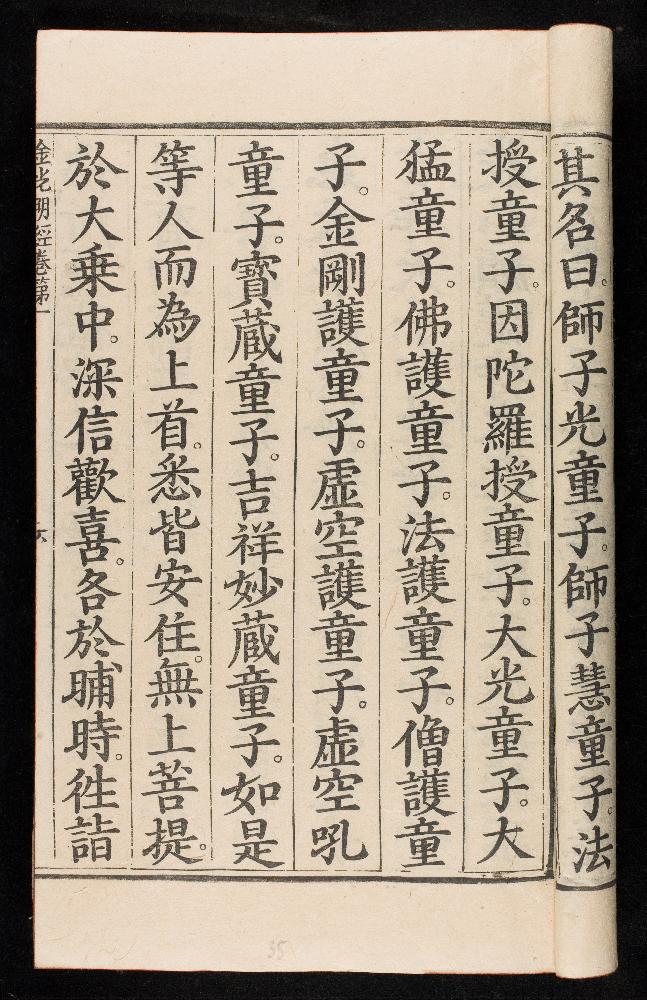 其名曰。師子光童子。師子慧童子。法
授童子。因陀羅授童子。大光童子。大
猛童子。佛護童子。法護童子。僧護童
子。金剛護童子。虛空護童子。虛空吼
童子。寳蔵童子。吉祥妙蔵童子。如是
等人而為上首。悉皆安住。無上菩提。
於大乗中。深信歡喜。各於晡時。徃詣
金光明經卷第一
六
35